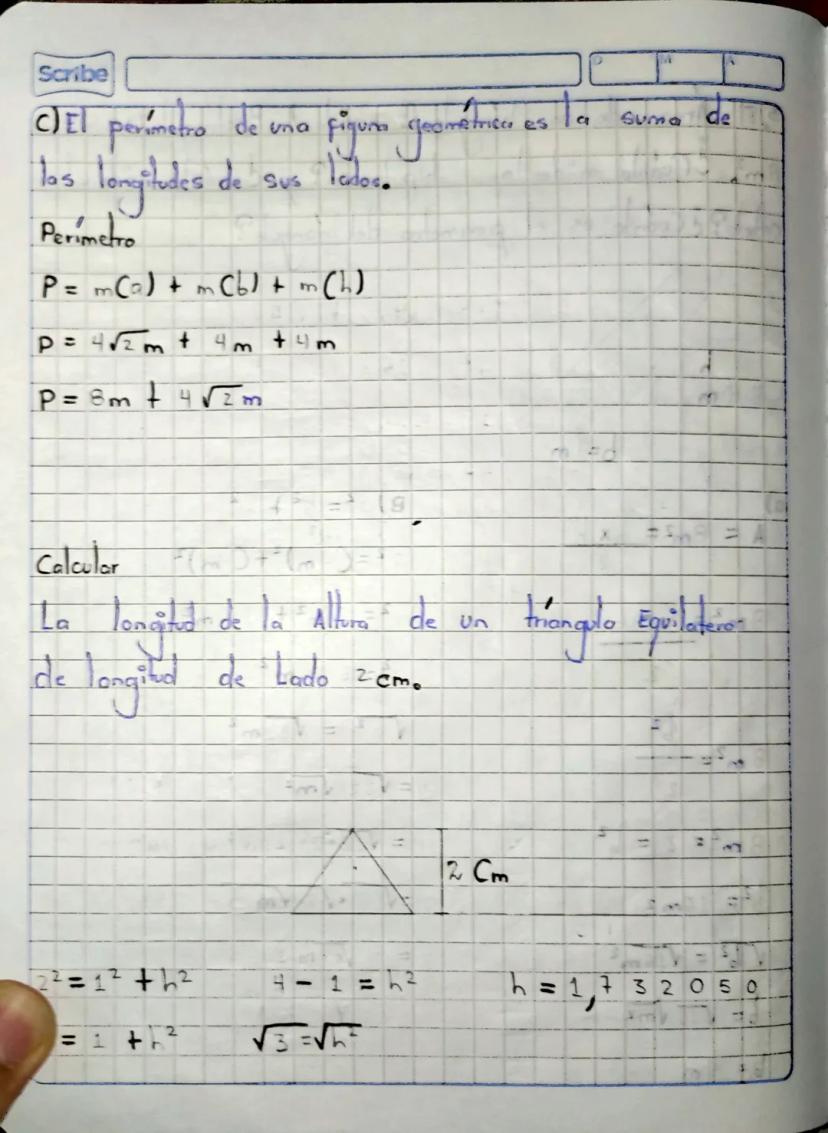 Scribe
D M A
C) El perímetro de una figura geométrica es la suma de
las longitudes de sus lados.
Perímetro
P = m(a) + m(b) + m(h)
P = 4√2 m + 4m + 4m
P = 8m + 4√2 m
Calcular
La longitud de la Altura de un tríangulo Equilatero
de longitud de Lado 2cm.
2 Cm
2² = 1² + h² 4 - 1 = h² h = 1,732050
= 1 + h² √3 = √h²